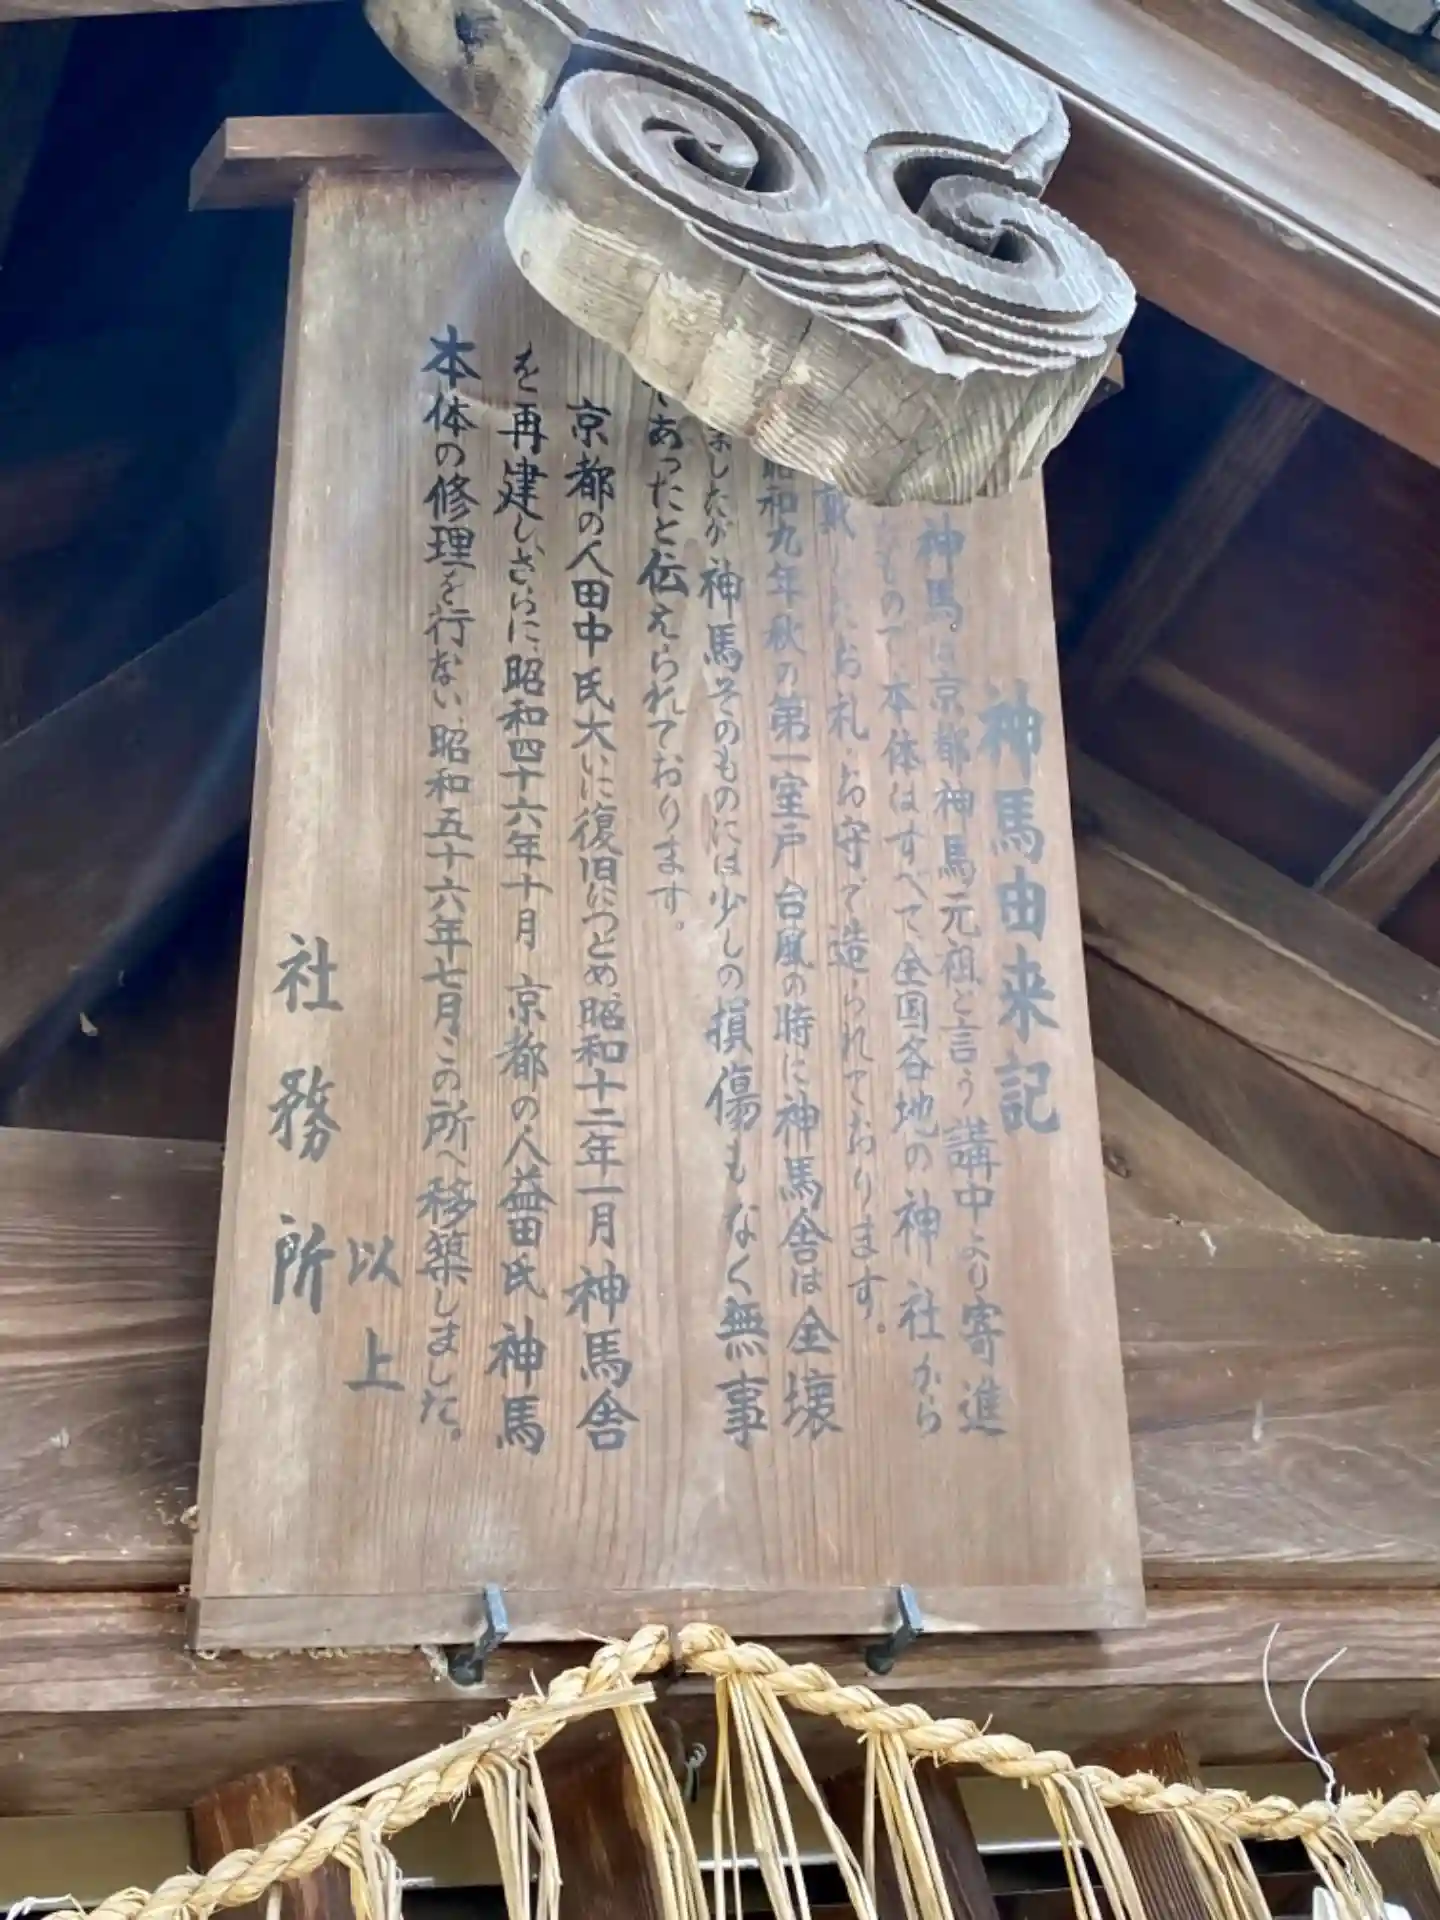 神馬由来記
神馬は京都神馬元祖と言う講中より寄進
もので、本体はすべて全国各地の神社から
戴いたお札、お守で造られております。
昭和九年秋の第一室戸台風の時に神馬舎は全壊
ましたが神馬そのものには少しの損傷もなく無事
であったと伝えられております。
京都の人田中氏大いに復旧につとめ、昭和十二年一月神馬舎
を再建し、さらに、昭和四十六年十月京都の人益田氏神馬
本体の修理を行ない、昭和五十六年七月、この所へ移築しました。
以上
社務所